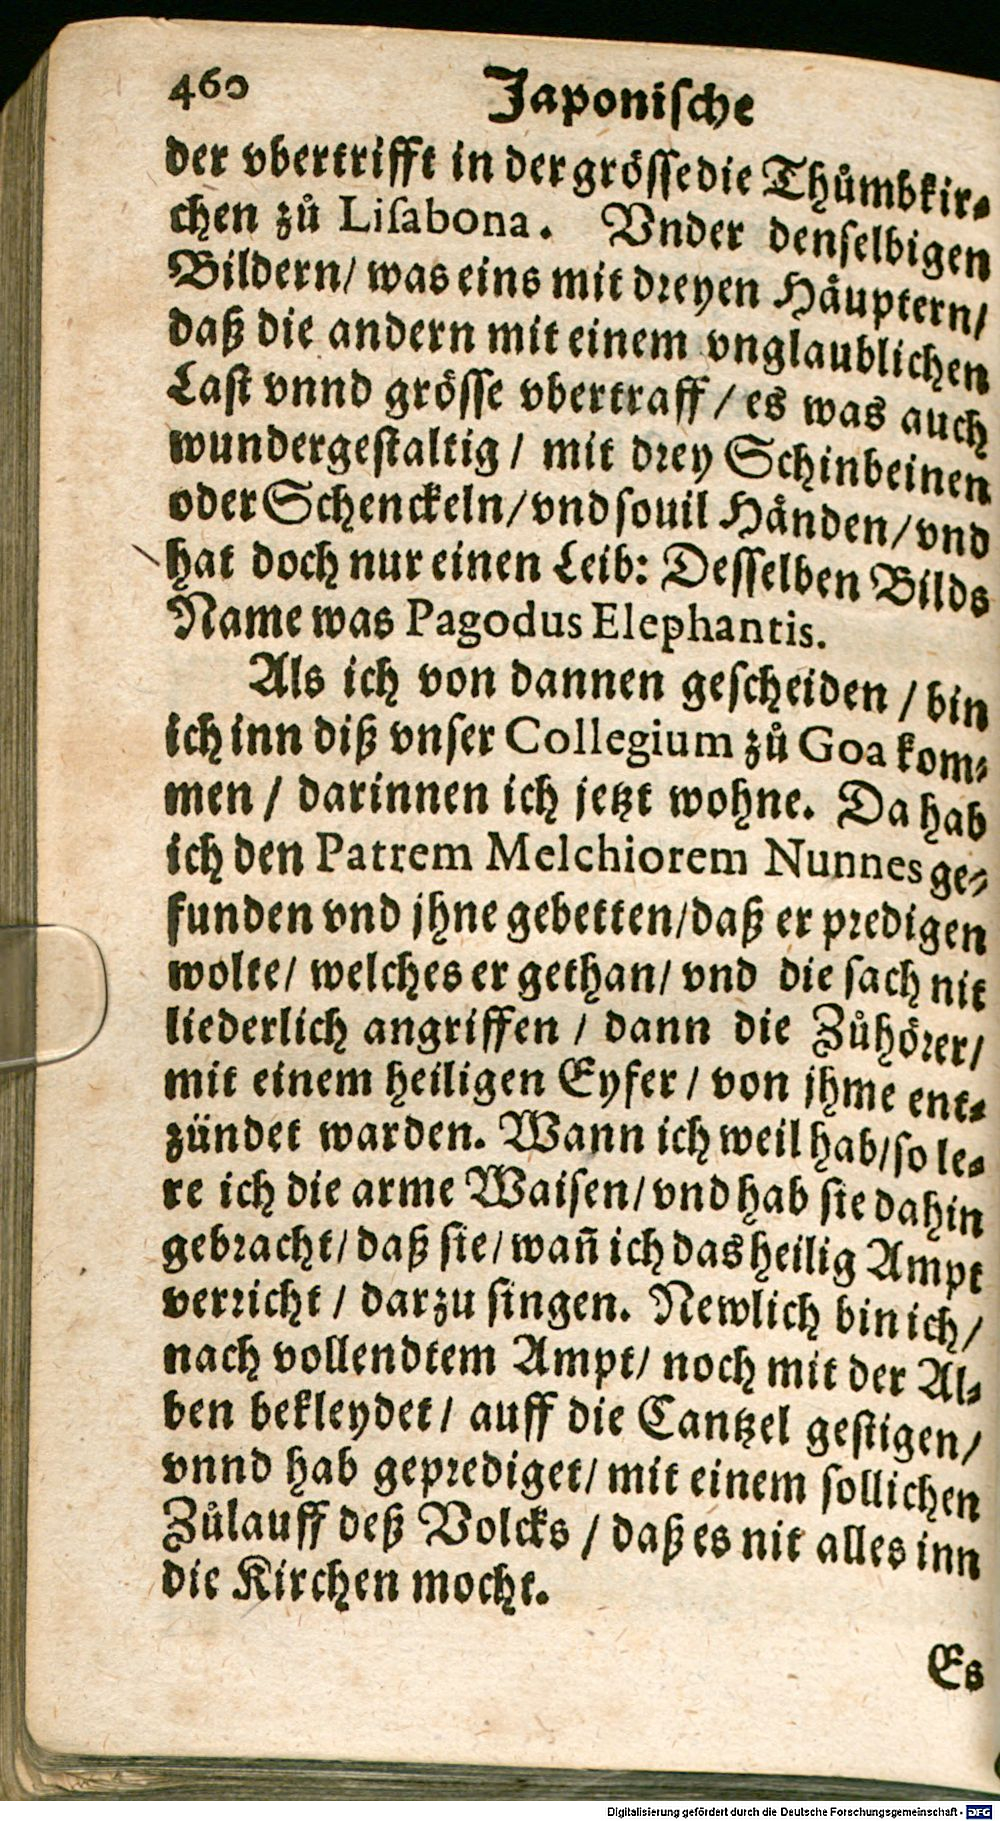 460 Japoniſche
der vbertrifft in der gröſſe die Thůmbkir-
chen zů Liſabona. Vnder denſelbigen
Bildern/ was eins mit dreyen Häuptern/
daß die andern mit einem vnglaublichen
Laſt vnnd gröſſe vbertraff/ es was auch
wundergeſtaltig/ mit drey Schinbeinen
oder Schenckeln/ vnd ſouil Händen/ vnd
hat doch nur einen Leib: Deſſelben Bilds
Name was Pagodus Elephantis.
Als ich von dannen geſcheiden/ bin
ich inn diß vnſer Collegium zů Goa kom-
men/ darinnen ich jetzt wohne. Da hab
ich den Patrem Melchiorem Nunnes ge-
funden vnd jhne gebetten/ daß er predigen
wolte/ welches er gethan/ vnd die ſach nit
liederlich angriffen/ dann die Zůhörer/
mit einem heiligen Eyfer/ von jhme ent-
zündet warden. Wann ich weil hab/ ſo le-
re ich die arme Waiſen/ vnd hab ſie dahin
gebracht/ daß ſie/ wañ ich das heilig Ampt
verricht/ darzu ſingen. Newlich bin ich/
nach vollendtem Ampt/ noch mit der Al-
ben bekleydet/ auff die Cantzel geſtigen/
vnnd hab geprediget/ mit einem ſollichen
Zůlauff deß Volcks/ daß es nit alles inn
die Kirchen mocht.
Es
Digitalisierung gefördert durch die Deutsche Forschungsgemeinschaft - DFG